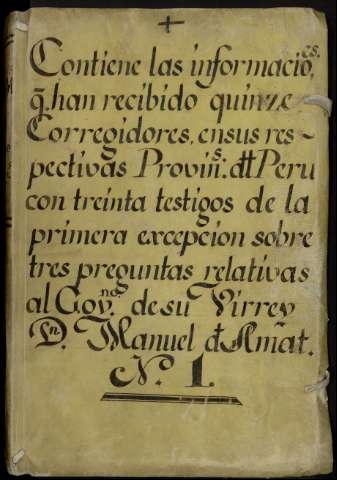 +
Contiene las informacio^es.
q̃. han recibido quinze
Corregidores, en sus res-
pectivas Provin^s: dl Peru
con treinta testigos de la
primera excepcion sobre
tres preguntas relativas
al Gov^no. de su Virrey
D^n. Manuel d Amat.
N.º 1.